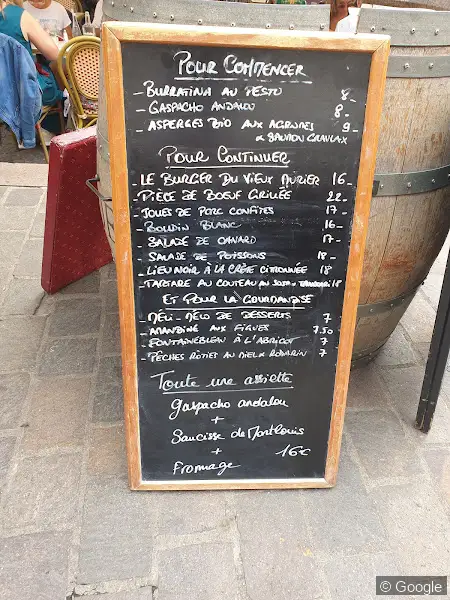 Pour Commencer
- Burratina au pesto 8-
- Gaspacho andalou 8-
- Asperges bio aux agrumes 9-
& saumon gravlax
Pour Continuer
- Le burger du Vieux Mûrier 16-
- Pièce de boeuf grillée 22-
- Joues de porc confites 17-
- Boudin blanc 16-
- Salade de canard 17-
- Salade de poissons 18
- Lieu noir à la crète citronnée 18
- Tartare au couteau au soja 18-
Et pour la gourmandise
- Méli-mélo de desserts 7
- Amandine aux figues 7.50
- Fontainebleau à l'abricot 7
- Pêches rôties au miel & romarin 7
Toute une assiette
Gaspacho andalou
+
Saucisse de Montlouis
+ 16€
Fromage
© Google